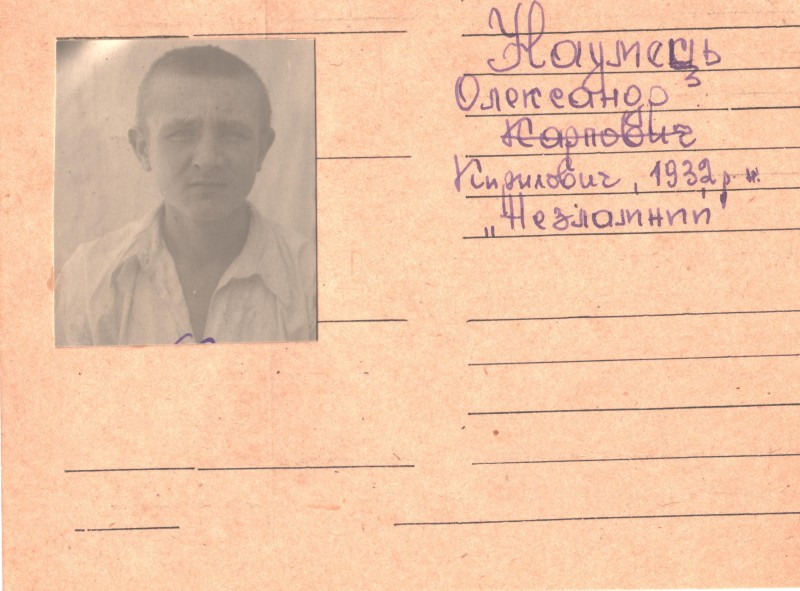 Наумець
Олександр
Карпович
Кирилович, 1932 р. н.
„Незламний"